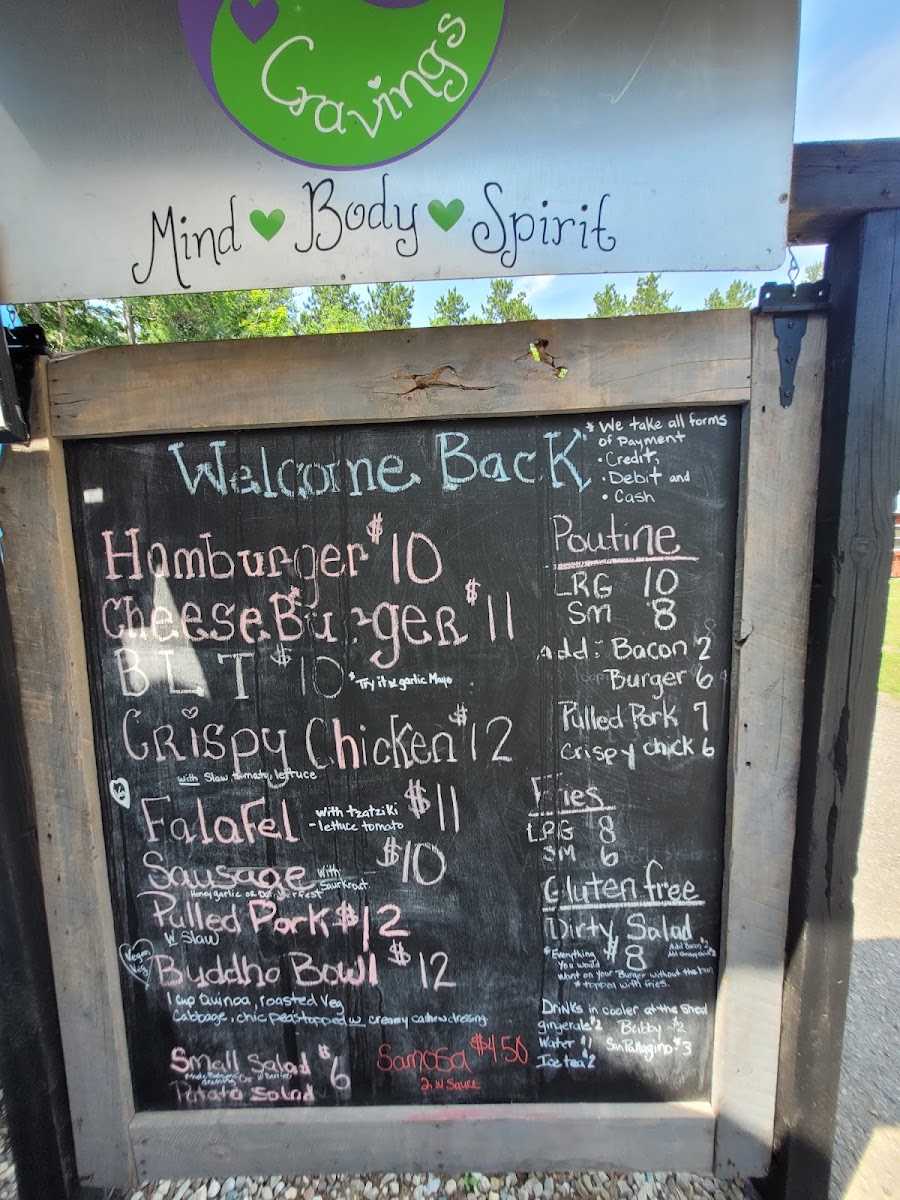 Cravings
Mind Body Spirit
Welcome Back
* We take all forms
of Payment
• Credit,
• Debit and
• Cash
Hamburger $10
CheeseBurger $11
BLT $10 *Try it w garlic Mayo
Crispy Chicken $12
with Slaw tomato, lettuce
Falafel with tzatziki $11
- lettuce tomato
Sausage with $10
Saurkrat
Honey garlic or
Pulled Pork $12
w Slaw
Vegan
Buddha Bowl $12
1 cup Quinoa, roasted Veg
Cabbage, chic peas topped w creamy cashew dressing
Small Salad $6
Potato Salad
Samosa $4.50
2 w Sauce
Poutine
LRG 10
SM 8
Add: Bacon 2
Burger 6
Pulled Pork 7
Crispy chick 6
Fries
LRG 8
SM 6
Gluten free
Dirty Salad
$8
*Everything
You would
Want on your Burger without the bun
* topped with fries.
Add Bacon $2
Drinks in cooler at the shed
gingerale $2 Bubby - $2
Water $1 SanPallagino - $3
Ice tea $2